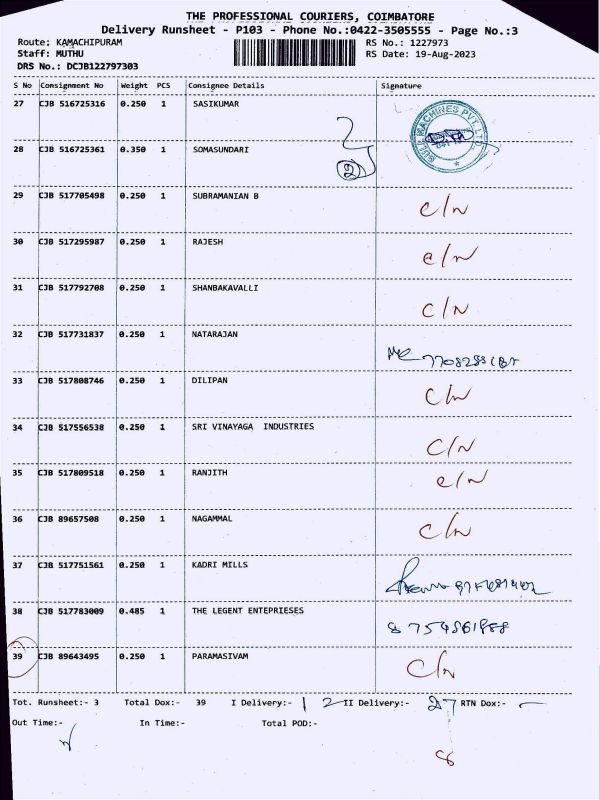 THE PROFESSIONAL COURIERS, COIMBATORE
Delivery Runsheet - P103 - Phone No.:0422-3505555 - Page No.:3
Route: KAMACHIPURAM RS No.: 1227973
Staff: MUTHU RS Date: 19-Aug-2023
DRS No.: DCJB122797303
S No Consignment No Weight PCS Consignee Details Signature
27 CJB 516725316 0.250 1 SASIKUMAR
BULL MACHINES PVT. LTD
28 CJB 516725361 0.350 1 SOMASUNDARI
2
29 CJB 517705498 0.250 1 SUBRAMANIAN B
C/N
30 CJB 517295987 0.250 1 RAJESH
C/N
31 CJB 517792708 0.250 1 SHANBAKAVALLI
C/N
32 CJB 517731837 0.250 1 NATARAJAN
33 CJB 517808746 0.250 1 DILIPAN
C/N
34 CJB 517556538 0.250 1 SRI VINAYAGA INDUSTRIES
C/N
35 CJB 517809518 0.250 1 RANJITH
C/N
36 CJB 89657508 0.250 1 NAGAMMAL
C/N
37 CJB 517751561 0.250 1 KADRI MILLS
38 CJB 517783009 0.485 1 THE LEGENT ENTEPRIESES
39 CJB 89643495 0.250 1 PARAMASIVAM
C/N
Tot. Runsheet:- 3 Total Dox:- 39 I Delivery:- 12 II Delivery:- 27 RTN Dox:-
Out Time:- In Time:- Total POD:-
8